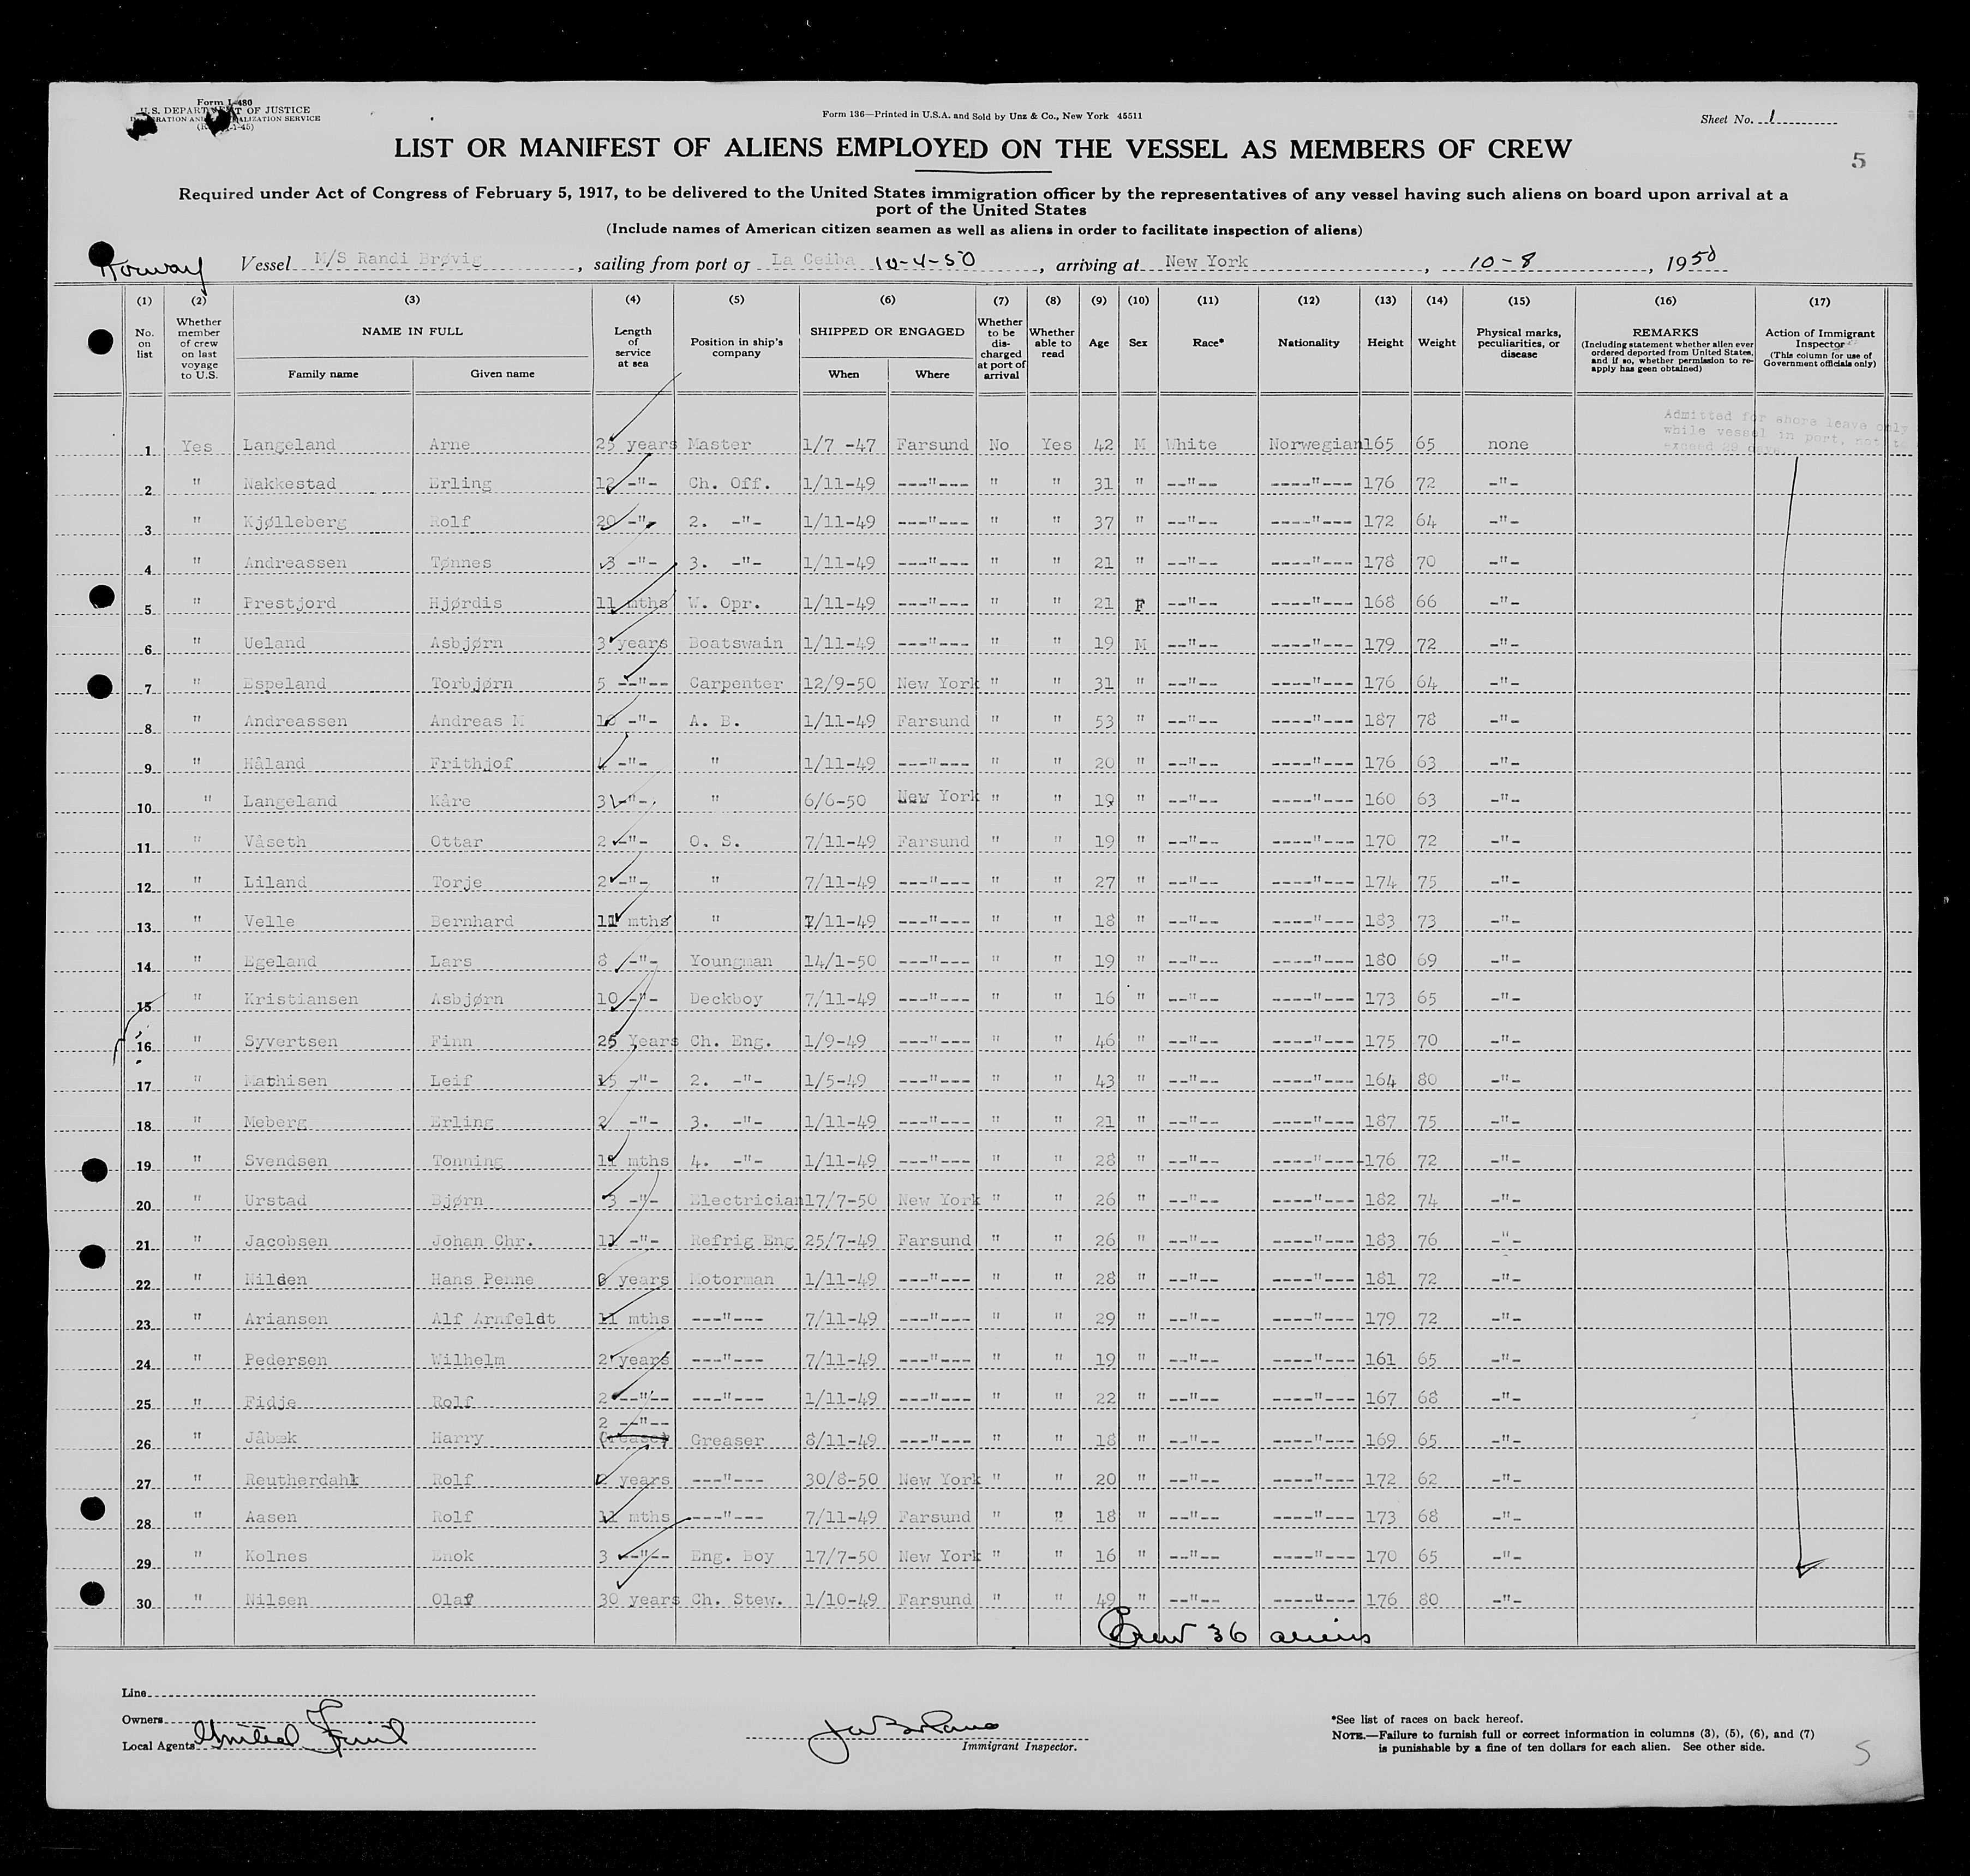 Form I-480
U.S. DEPARTMENT OF JUSTICE
IMMIGRATION AND NATURALIZATION SERVICE
Form 136—Printed in U.S.A. and Sold by Unz & Co., New York 45511
Sheet No. 1
5
LIST OR MANIFEST OF ALIENS EMPLOYED ON THE VESSEL AS MEMBERS OF CREW
Required under Act of Congress of February 5, 1917, to be delivered to the United States immigration officer by the representatives of any vessel having such aliens on board upon arrival at a
port of the United States
(Include names of American citizen seamen as well as aliens in order to facilitate inspection of aliens)
Norway Vessel M/S Randi Brøvig, sailing from port of La Ceiba 10-4-50, arriving at New York, 10-8, 1950
(1) (2) (3) (4) (5) (6) (7) (8) (9) (10) (11) (12) (13) (14) (15) (16) (17)
No. on list
Whether member of crew on last voyage to U.S.
NAME IN FULL
Family name Given name
Length of service at sea
Position in ship's company
SHIPPED OR ENGAGED
When Where
Whether to be discharged at port of arrival
Whether able to read
Age Sex Race* Nationality Height Weight
Physical marks, peculiarities, or disease
REMARKS
(Including statement whether alien ever ordered deported from United States, and if so, whether permission to re-apply has geen obtained)
Action of Immigrant Inspector
(This column for use of Government officials only)
Admitted for shore leave only
while vessel in port, not to
exceed 29 days.
1 Yes Langeland Arne 25 years Master 1/7 -47 Farsund No Yes 42 M White Norwegian 165 65 none
2 " Nakkestad Erling 12 -"- Ch. Off. 1/11-49 ---"--- " " 31 " --"-- ----"--- 176 72 -"-
3 " Kjølleberg Rolf 20 -"- 2. -"- 1/11-49 ---"--- " " 37 " --"-- ----"--- 172 64 -"-
4 " Andreassen Tønnes 3 -"- 3. -"- 1/11-49 ---"--- " " 21 " --"-- ----"--- 178 70 -"-
5 " Prestjord Hjørdis 11 mths W. Opr. 1/11-49 ---"--- " " 21 F --"-- ----"--- 168 66 -"-
6 " Ueland Asbjørn 3 years Boatswain 1/11-49 ---"--- " " 19 M --"-- ----"--- 179 72 -"-
7 " Espeland Torbjørn 5 --"-- Carpenter 12/9-50 New York " " 31 " --"-- ----"--- 176 64 -"-
8 " Andreassen Andreas M -"- A. B. 1/11-49 Farsund " " 53 " --"-- ----"--- 187 78 -"-
9 " Håland Frithjof 4 -"- " 1/11-49 ---"--- " " 20 " --"-- ----"--- 176 63 -"-
10 " Langeland Kåre 3 -"- " 6/6-50 New York " " 19 " --"-- ----"--- 160 63 -"-
11 " Våseth Ottar 2 -"- O. S. 7/11-49 Farsund " " 19 " --"-- ----"--- 170 72 -"-
12 " Liland Torje 2 -"- " 7/11-49 ---"--- " " 27 " --"-- ----"--- 174 75 -"-
13 " Velle Bernhard 11 mths " 7/11-49 ---"--- " " 18 " --"-- ----"--- 183 73 -"-
14 " Egeland Lars 8 -"- Youngman 14/1-50 ---"--- " " 19 " --"-- ----"--- 180 69 -"-
15 " Kristiansen Asbjørn 10 -"- Deckboy 7/11-49 ---"--- " " 16 " --"-- ----"--- 173 65 -"-
16 " Syvertsen Finn 25 Years Ch. Eng. 1/9-49 ---"--- " " 46 " --"-- ----"--- 175 70 -"-
17 " Mathisen Leif 15 -"- 2. -"- 1/5-49 ---"--- " " 43 " --"-- ----"--- 164 80 -"-
18 " Meberg Erling 2 -"- 3. -"- 1/11-49 ---"--- " " 21 " --"-- ----"--- 187 75 -"-
19 " Svendsen Tonning 11 mths 4. -"- 1/11-49 ---"--- " " 28 " --"-- ----"--- 176 72 -"-
20 " Urstad Bjørn 3 -"- Electrician 17/7-50 New York " " 26 " --"-- ----"--- 182 74 -"-
21 " Jacobsen Johan Chr. 11 -"- Refrig Eng 25/7-49 Farsund " " 26 " --"-- ----"--- 183 76 -"-
22 " Nilden Hans Penne years Motorman 1/11-49 ---"--- " " 28 " --"-- ----"--- 181 72 -"-
23 " Ariansen Alf Arnfeldt 11 mths ---"--- 7/11-49 ---"--- " " 29 " --"-- ----"--- 179 72 -"-
24 " Pedersen Wilhelm 2 years ---"--- 7/11-49 ---"--- " " 19 " --"-- ----"--- 161 65 -"-
25 " Fidje Rolf 2 --"-- ---"--- 1/11-49 ---"--- " " 22 " --"-- ----"--- 167 68 -"-
26 " Jåbæk Harry 2 --"-- Greaser 8/11-49 ---"--- " " 18 " --"-- ----"--- 169 65 -"-
27 " Reutherdahl Rolf 2 years ---"--- 30/8-50 New York " " 20 " --"-- ----"--- 172 62 -"-
28 " Aasen Rolf 11 mths ---"--- 7/11-49 Farsund " " 18 " --"-- ----"--- 173 68 -"-
29 " Kolnes Enok 3 --"-- Eng. Boy 17/7-50 New York " " 16 " --"-- ----"--- 170 65 -"-
30 " Nilsen Olaf 30 years Ch. Stew. 1/10-49 Farsund " " 49 " --"-- ----"--- 176 80 -"-
Crew 36 aliens
Line
Owners
Local Agents United Fruit
Immigrant Inspector.
*See list of races on back hereof.
NOTE.—Failure to furnish full or correct information in columns (3), (5), (6), and (7)
is punishable by a fine of ten dollars for each alien. See other side.
5